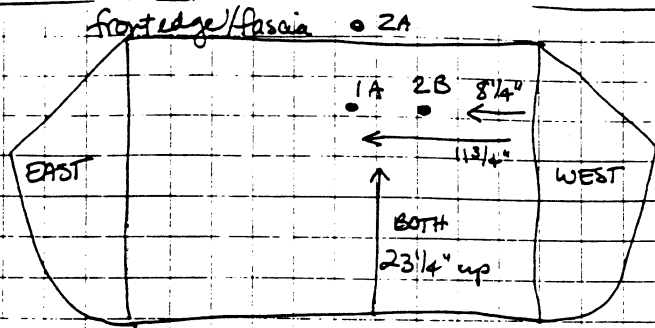 front edge/fascia • 2A
1A 2B 8 1/4"
11 3/4"
EAST WEST
BOTH
23 1/4" up